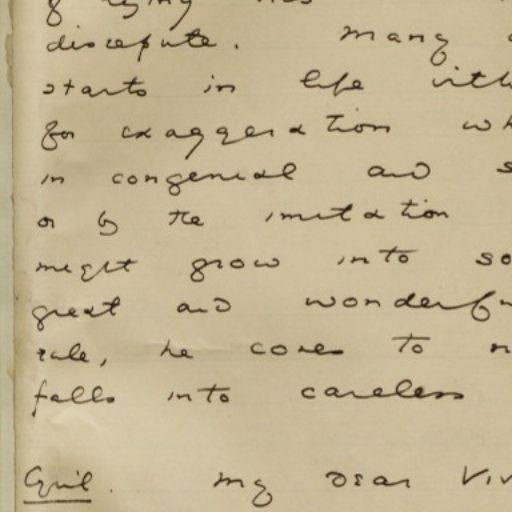 of lying has
disrepute. Many a
starts in life with
for exaggeration wh
in congenial and s
or by the imitation
might grow into so
great and wonderfu
rule, he comes to n
falls into careless
Cyril. My dear Viv